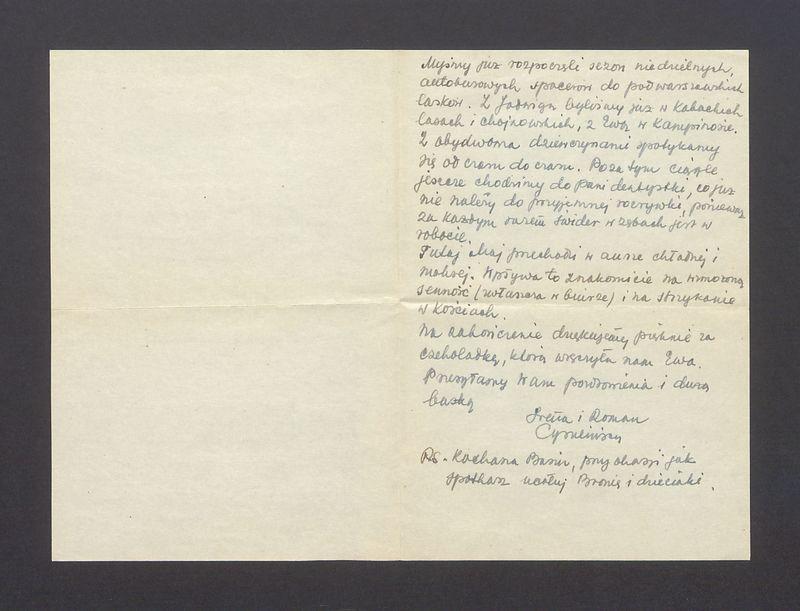 Myśmy już rozpoczęli sezon niedzielnych,
autobusowych spacerów do podwarszawskich
lasków. Z Jadwigą byliśmy już w Kabackich
lasach i chojnowskich, z Ewą w Kampinosie.
Z obydwoma dziewczynami spotykamy
się od czasu do czasu. Poza tym ciągle
jeszcze chodzimy do pani dentystki, co już
nie należy do przyjemnej rozrywki, ponieważ
za każdym razem świder w zębach jest w
robocie.
Tutaj Maj przechodzi w aurze chłodnej i
mokrej. Wpływa to znakomicie na wzmożoną
senność (zwłaszcza w biurze) i na strzykanie
w kościach.
Na zakończenie dziękujemy pięknie za
czekoladkę, którą wręczyła nam Ewa.
Przesyłamy Wam pozdrowienia i dużą
buzkę
Irena i Roman
Ps. Kochana Basiu, przy okazji jak
spotkasz ucałuj Bronię i dzieciaki.